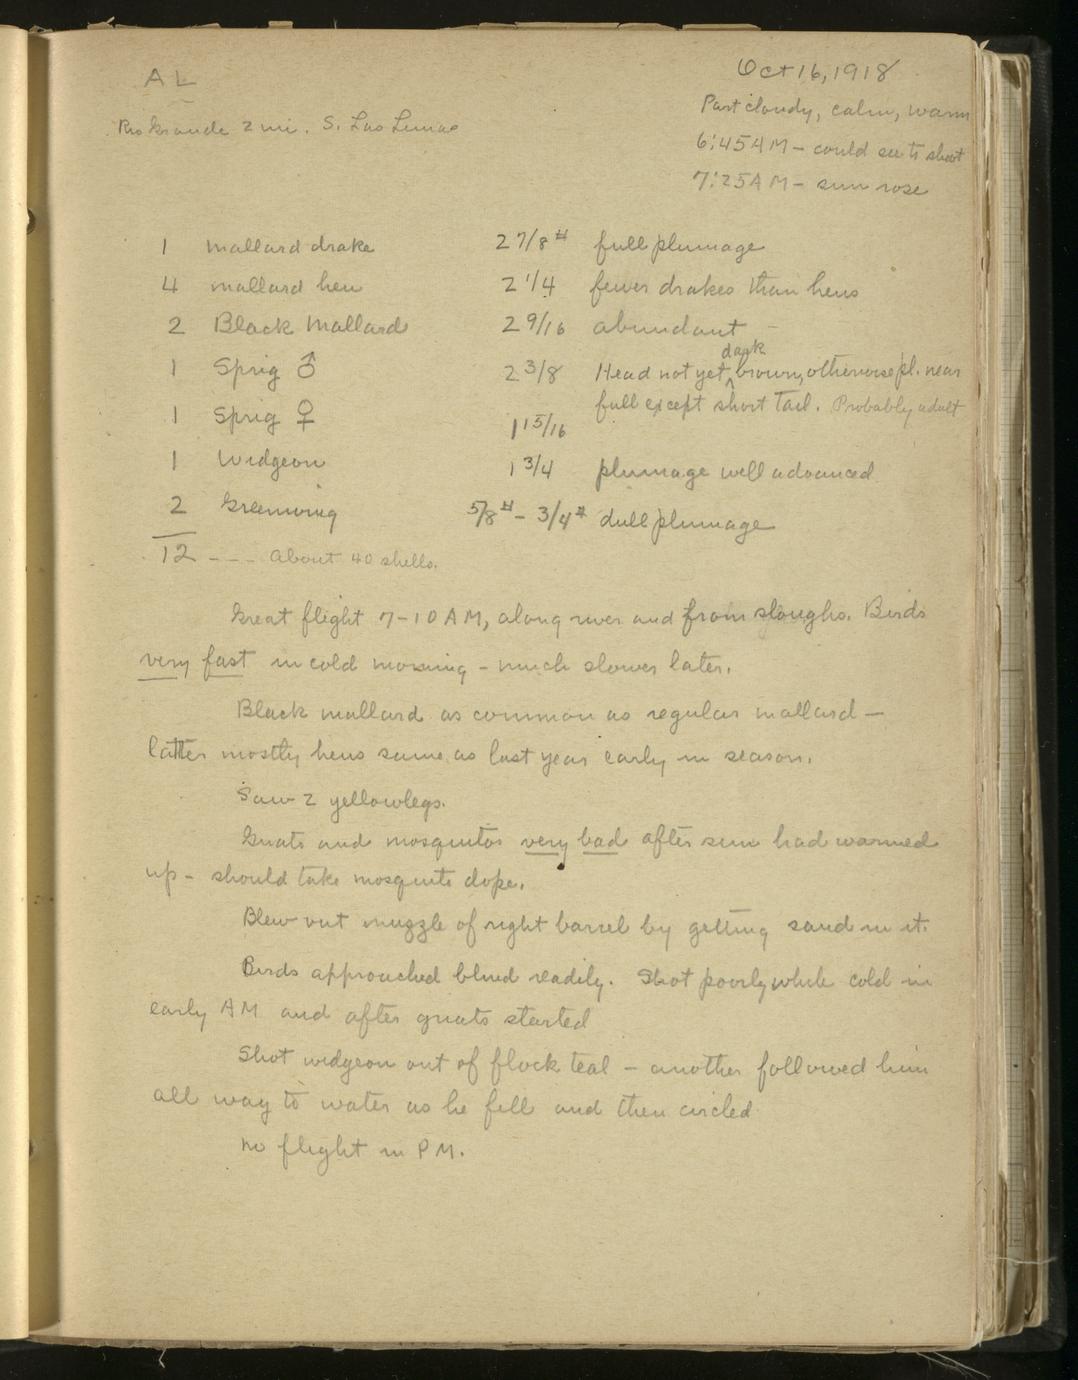 AL
Oct 16, 1918
Part cloudy, calm, warm
Rio Grande 2 mi. S. Los Lunas
6:45 AM – could see to shoot
7:25 AM – sun rose
1 mallard drake 2 7/8 # full plumage
4 mallard hen 2 1/4 fewer drakes than hens
2 Black Mallard 2 9/16 abundant –
1 Sprig ♂ 2 3/8 Head not yet dark brown, otherwise pl. near
full except short tail. Probably adult
1 Sprig ♀ 1 15/16
1 Widgeon 1 3/4 plumage well advanced
2 Greenwing 5/8 # – 3/4 # dull plumage
12 - - - About 40 shells.
Great flight 7–10 AM, along river and from sloughs. Birds
very fast in cold morning – much slower later.
Black mallard as common as regular mallard –
latter mostly hens same as last year early in season.
Saw 2 yellowlegs.
Gnats and mosquitos very bad after sun had warmed
up – should take mosquito dope.
Blew out muzzle of right barrel by getting sand in it.
Birds approached blind readily. Shot poorly while cold in
early AM and after gnats started
Shot widgeon out of flock teal – another followed him
all way to water as he fell and then circled
No flight in PM.